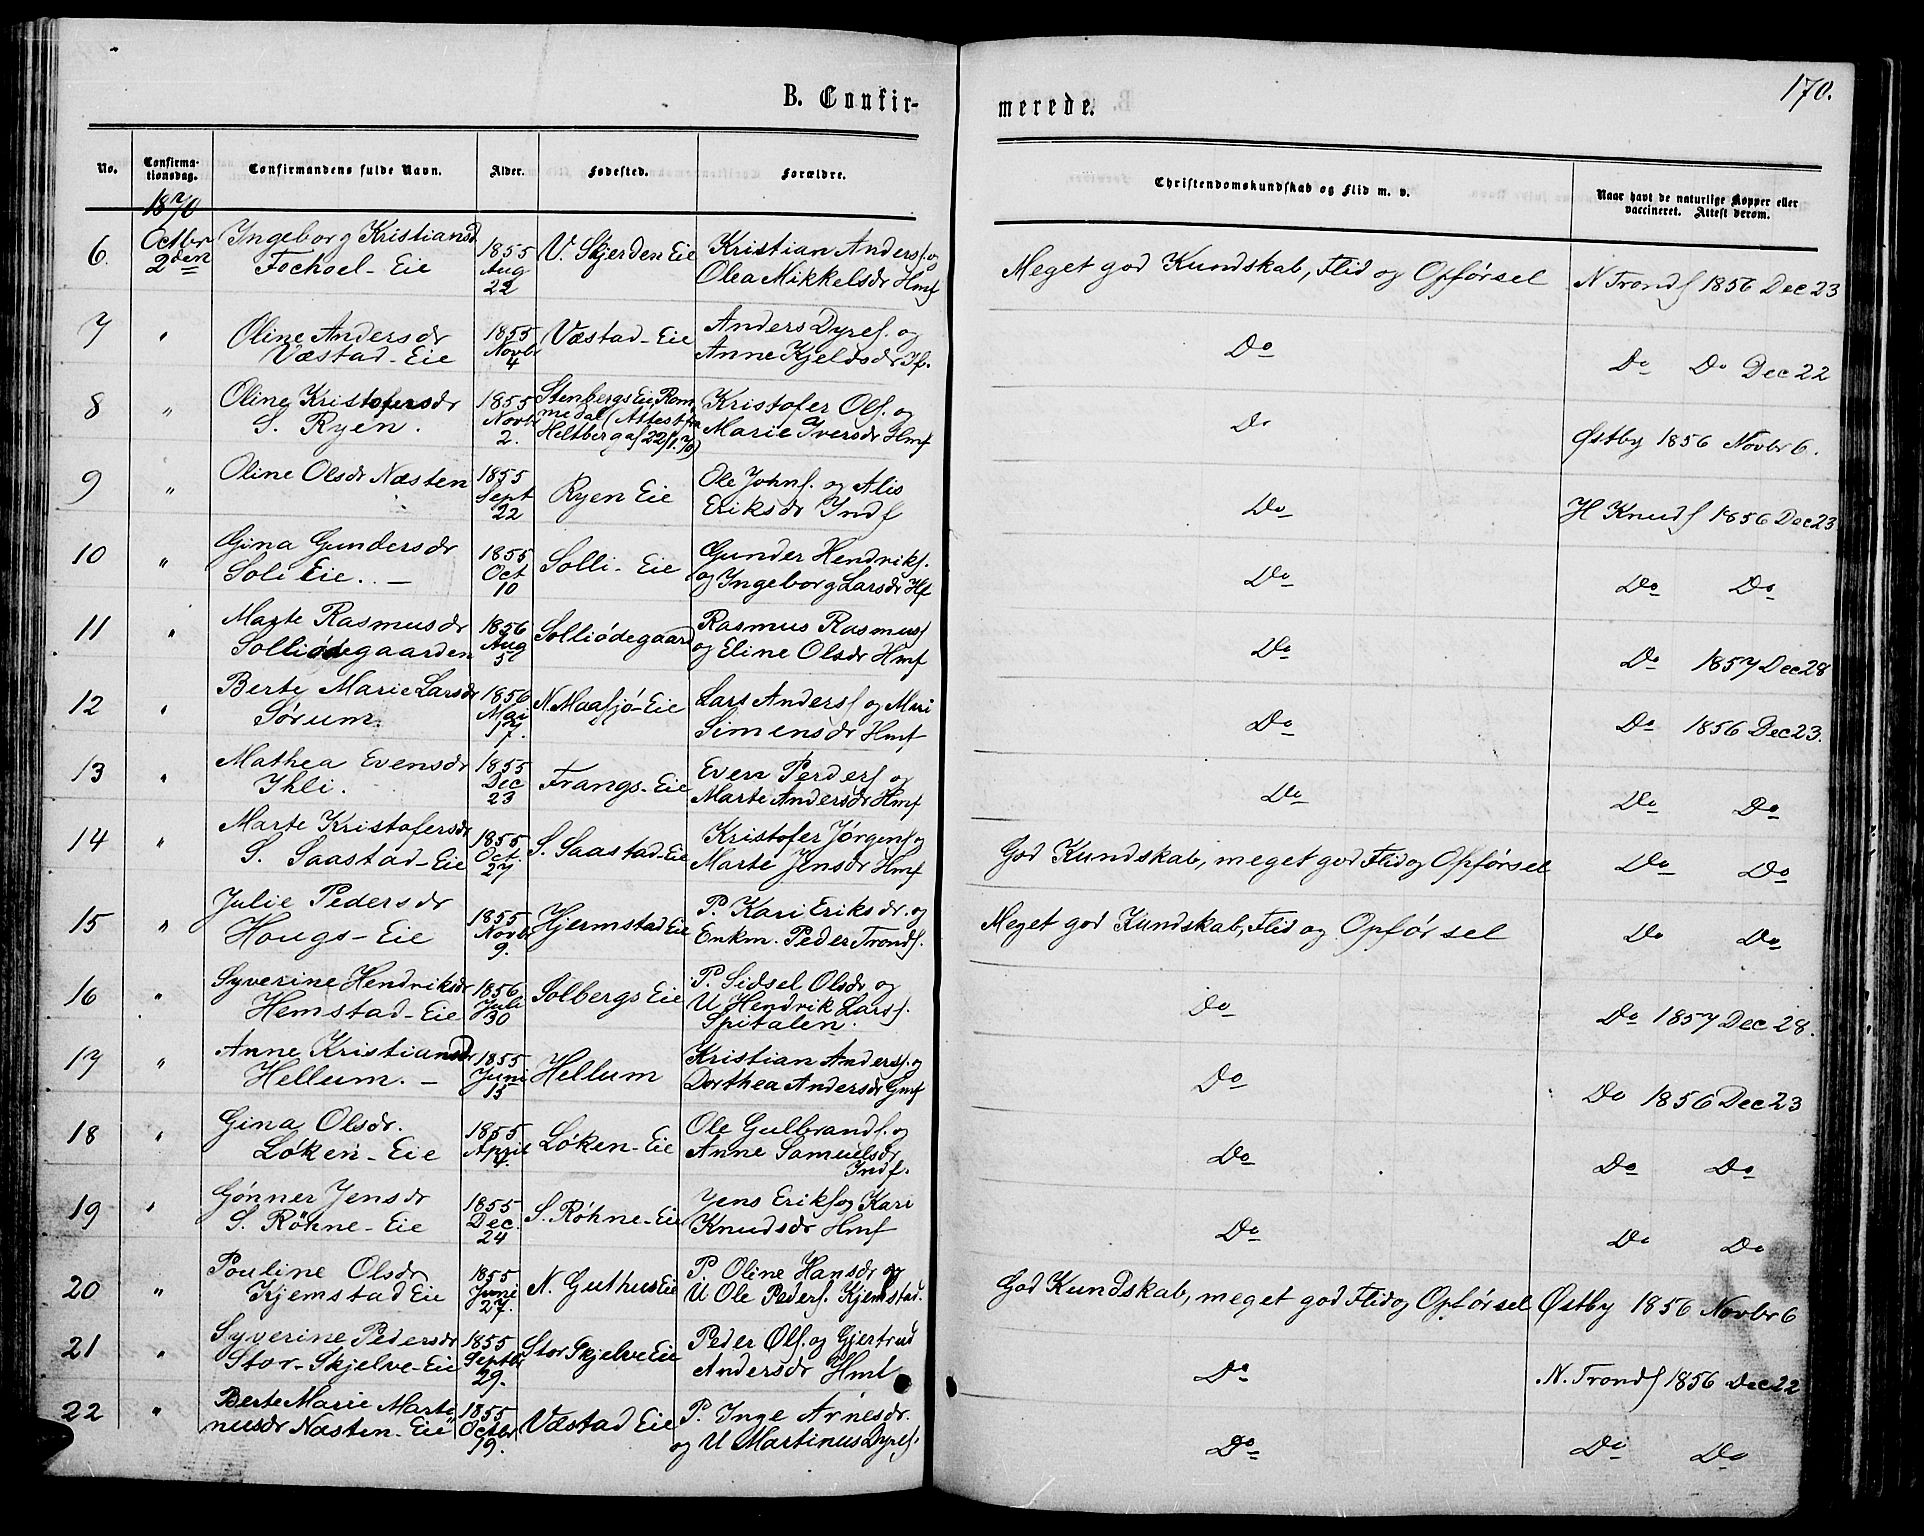 B. Confirmerede.
170.
No.
Confirma-
tionsdag.
Confirmandens fulde Navn.
Alder.
Fødested.
Forældre.
Christendomskundskab og Flid m. v.
Naar havt de naturlige Kopper eller
vaccineret. Attest derom.
1870
6. Octbr 2den Ingeborg Kristiansd 1855 Aug 22 V. Skjerden Eie Kristian Anders. og
Eie Olea Mikkelsdr Hmf
Meget god Kundskab, Flid og Opførsel N Tronds 1856 Dec 23
7 " Oline Andersdr 1855 Novbr 4 Væstad-Eie Anders Dyres. og
Væstad-Eie Anne Kjeldsdr If.
Do Do Do Dec 22
8 " Oline Kristofersdr 1855 Novbr 2. Stenbergs Eie Rom- Kristofer Ols. og
S. Ryen. medal (Attest fra Marie Iversdr Hmf
Heltberg af 22/1.70)
Do Østby 1856 Novbr 6.
9 " Oline Olsdr Næsten 1855 Sept 22 Ryen Eie Ole Johns. og Alis
Eriksdr Indf
Do H Knuds 1856 Dec 23
10 " Gina Gundersdr 1855 Oct 10 Solli-Eie Gunder Hendriks.
Soli Eie. og Ingeborg Larsdr Hf
Do Do Do
11 " Marte Rasmusdr 1856 Aug 5 Solliødegaard Rasmus Rasmus
Solliødegaarden og Eline Olsdr Hmf
Do Do 1857 Dec 28
12 " Berte Marie Larsdr 1856 Mai 17. N. Maasjø-Eie Lars Anders og Mari
Sørum. Simensdr Hmf
Do Do 1856 Dec 23.
13 " Mathea Evensdr 1855 Dec 23 Frangs-Eie Even Peders og
Ihli. Marte Andersdr Hmf
Do Do Do
14 " Marte Kristofersdr 1855 Oct. 27 S. Saastad-Eie Kristofer Jørgens og
S. Saastad-Eie Marte Jensdr Hmf
God Kundskab, meget god Flid og Opførsel Do Do
15 " Julie Pedersdr 1855 Novbr 9. Hjermstad Eie P. Kari Eriksdr. og
Hougs-Eie Enkm. Peder Tronds.
Meget god Kundskab, Flid og Opførsel Do Do
16 " Syverine Hendriksdr 1856 Juli 30 Solbergs Eie P. Sidsel Olsdr og
Hemstad-Eie U Hendrik Larss.
Spitalen.
Do Do 1857 Dec 28.
17 " Anne Kristiansdr 1855 Juni 15 Hellum Kristian Anderss. og
Hellum. Dorthea Andersdr Gmf
Do Do 1856 Dec 23
18 " Gina Olsdr. 1855 April 4. Løken-Eie Ole Gulbrands. og
Løken-Eie Anne Samuelsdr
Indf.
Do Do Do
19 " Gønner Jensdr 1855 Dec. 24 S. Røhne-Eie Jens Eriks og Kari
S. Røhne-Eie Knudsdr Hmf
Do Do Do
20 " Pouline Olsdr 1855 Juni 27. N. Guthus Eie P Oline Hansdr og
Kjemstad Eie U Ole Peders. Kjemstad.
God Kundskab, meget god Flid og Opførsel Østby 1856 Novbr 6
21 " Syverine Pedersdr 1855 Septbr 29. Stor Skjelve Eie Peder Ols. og Gjertrud
Stor-Skjelve-Eie Andersdr Hmf
Do N. Tronds 1856 Dec 22
22 " Berte Marie Marti- 1855 Octbr 19. Væstad Eie P. Inge Arnesdr.
nusdr Næsten-Eie og U Martinus Dyres.
Do Do Do